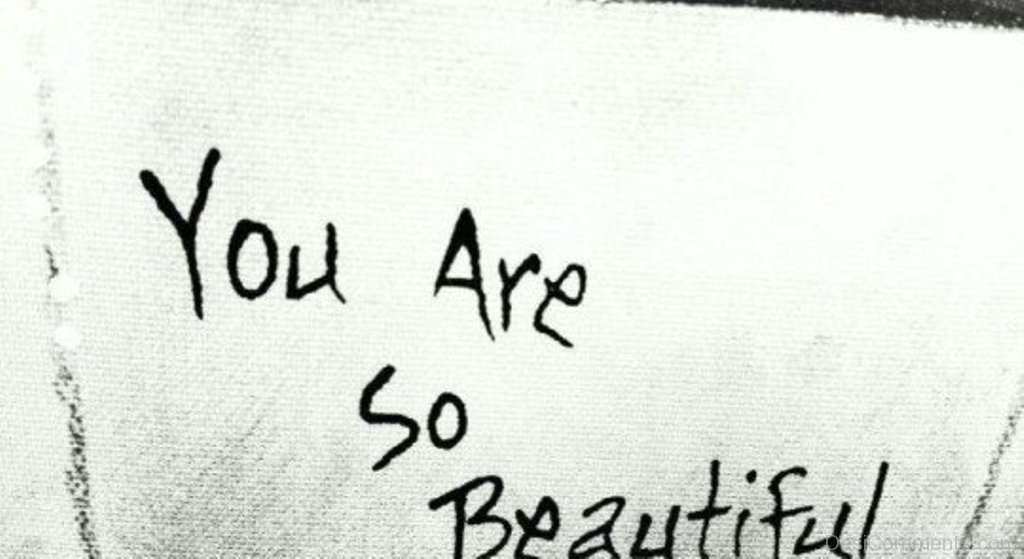 You Are
So
Beautiful
DesiComments.com